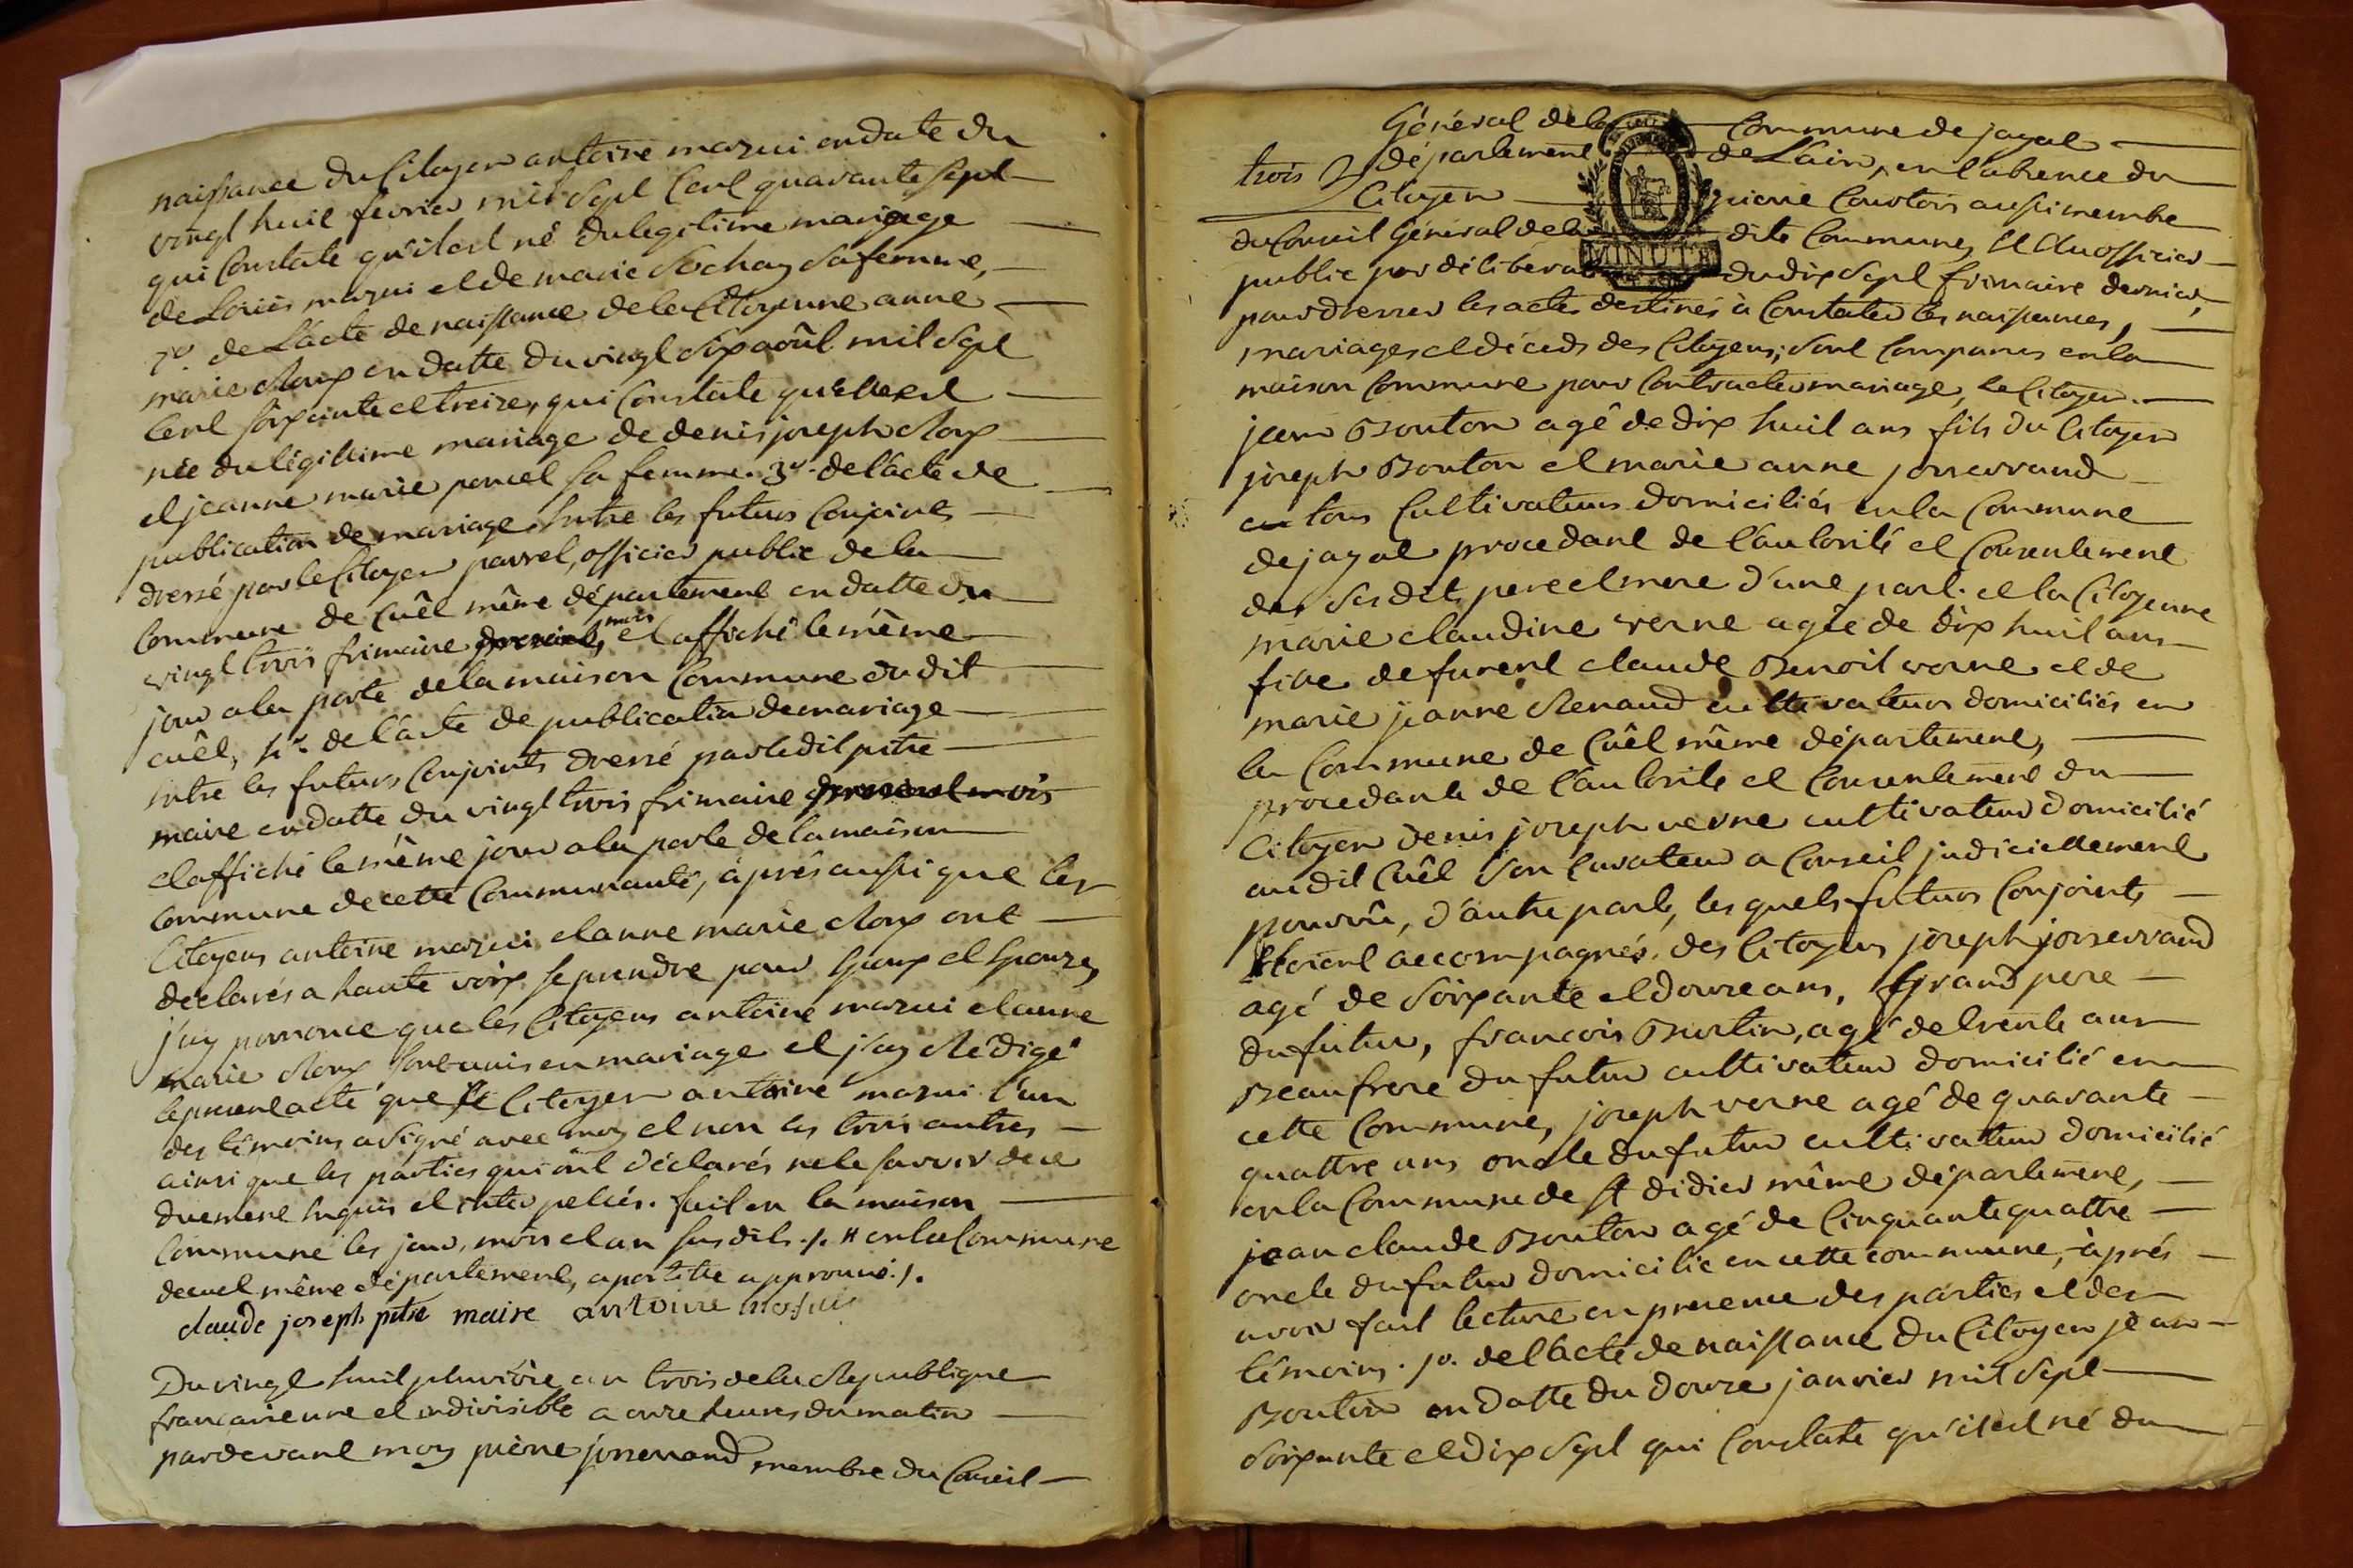 naissance du Citoyen antoine mazui en date du
vingt huit fevrier mil sept Cent quarante sept
qui Constate qu'il est né du legitime mariage
de Loüis mazui et de marie Sochay sa femme,
2º. de L'acte de naissance de la Citoyenne anne
marie Roux en datte du vingt six aoûl mil sept
Cent soixante et treize, qui Constate qu'elle est
née du légittime mariage de denis joseph Roux
et jeanne marie poncet sa femme. 3º. de l'acte de
publication de mariage Entre les futurs Conjoints
dressé par le Citoyen pavrel, officier public de la
Commune de Cuêl même département en datte du
vingt trois frimaire mois et affiché le même
jour a la porte de la maison Commune du dit
cuêl, 4º. de l'acte de publication de mariage
Entre les futurs Conjoints dressé par le dit pitre
maire en datte du vingt trois frimaire
et affiché le même jour a la porte de la maison
Commune de cette Communauté, après aussi que les
Citoyens antoine mazui et anne marie Roux ont
déclarés a haute voix se prendre pour Epoux et Epouze,
j'ay prononcé que les Citoyens antoine mazui et anne
marie Roux sont unis en mariage et j'ay Rédigé
le present acte que le Citoyen antoine mazui l'un
des témoins a signé avec moy et non les trois autres
ainsi que les parties qui ont déclarés ne le savoir de ce
duement Enquis et interpellés. fait en la maison
Commune les jour, mois et an sus dits ./. # en la Commune
de cuel même département, apostille approuvé ./.
claude joseph pitre maire antoine mazui
Du vingt huit pluviôse an trois de la Republique
francaisenne et indivisible a onze heures du matin
pardevant moy pierre josserand membre du Conseil
Général de la Commune de jayat
trois département de Lain, en l'absence du
Citoyen pierre Courtois aussi membre
du Conseil Général de la dite Commune, Elu officier
MINUTE
public par déliberation du dix sept frimaire dernier,
pour dresser les actes destinés à Constater les naissances,
mariages et déceds des Citoyens; sont Comparus en la
maison Commune pour Contracter mariage, le Citoyen
jean Bouton agé de dix huit ans fils du Citoyen
joseph Bouton et marie anne josserrand
tous Cultivateurs domiciliés en la Commune
de jayat procedant de l'autorité et Consentement
des sus dit pere et mere d'une part. et la Citoyenne
marie claudine verne agée de dix huit ans
fille de furent claude Benoit verne et de
marie jeanne Renaud cultivateurs domiciliés en
la Commune de Cuêl même département,
procedante de l'autorité et Consentement du
Citoyen denis joseph verne cultivateur domicilié
au dit Cuêl son Curateur a Conseil judiciellement
pourvû, d'autre part, les quels futurs Conjoints
Etoient accompagnés des Citoyens joseph josserrand
agé de soixante et douze ans, Grand pere
du futur, francois Burtin, agé de trente ans
Beaufrere du futur cultivateur domicilié en
cette Commune, joseph verne agé de quarante
quattre ans oncle du futur cultivateur domicilié
en la Commune de St didier même département,
jean claude Bouton agé de Cinquante quattre
oncle du futur domicilié en cette commune, après
avoir fait lecture en presence des parties et des
témoins. 1º. de l'acte de naissance du Citoyen jean
Bouton en datte du douze janvier mil sept
soixante et dix sept qui Constate qu'il est né du